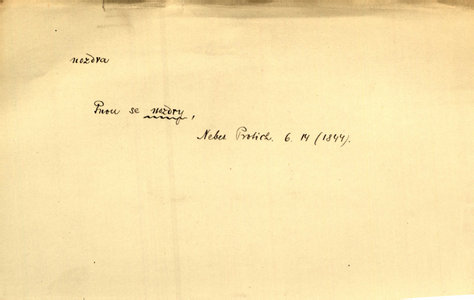 nozdra
Pnou se nozdry,
Nebes Protich. 6. 14 (1844).